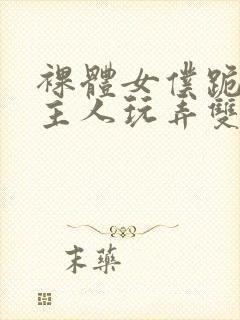 裸體女僕跪
主人玩弄雙
末藥